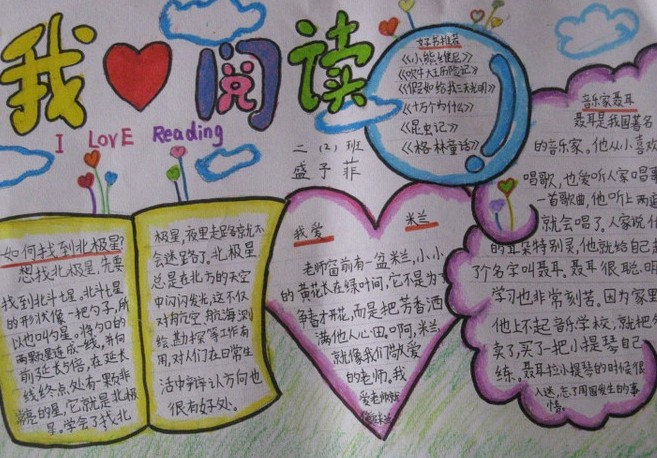 我 阅读
I LOVE Reading
二（2）班
盛子菲
好书推荐
《小熊维尼》
《吹牛大王历险记》
《假如给我三天光明》
《十万个为什么》
《昆虫记》
《格林童话》
如何找到北极星?
想找北极星，先要
找到北斗七星。北斗七星
的形状像一把勺子，所
以也叫勺星。将勺口的
两颗星连成一线，并向
前延长5倍，在延长
线终点处有一颗非
亮的星，它就是北极
星。学会了找北
极星，夜里走路就不
会迷路了。北极星
总是在北方的天空
中闪闪发光，这不仅
对航空、航海、测
绘、勘探等工作有
用，对人们在日常生
活中辨认方向也
很有好处。
我爱 米兰
老师窗前有一盆米兰，小小
的黄花长在绿叶间，它不是为了
争春才开花，而是把芳香洒
满他人心田。啊，米兰，
就像我们敬爱
的老师。我
爱老师
音乐家聂耳
聂耳是我国著名
的音乐家。他从小喜欢
唱歌，也爱听人家唱歌
一首歌曲，他听上两遍
就会唱了。人家说他
的耳朵特别灵，他就给自己起
了个名字叫聂耳。聂耳很聪明
学习也非常刻苦。因为家里
他上不起音乐学校，就把
卖了，买了一把小提琴自己
练。聂耳拉小提琴的时候很
入迷，忘了周围发生的事
情。